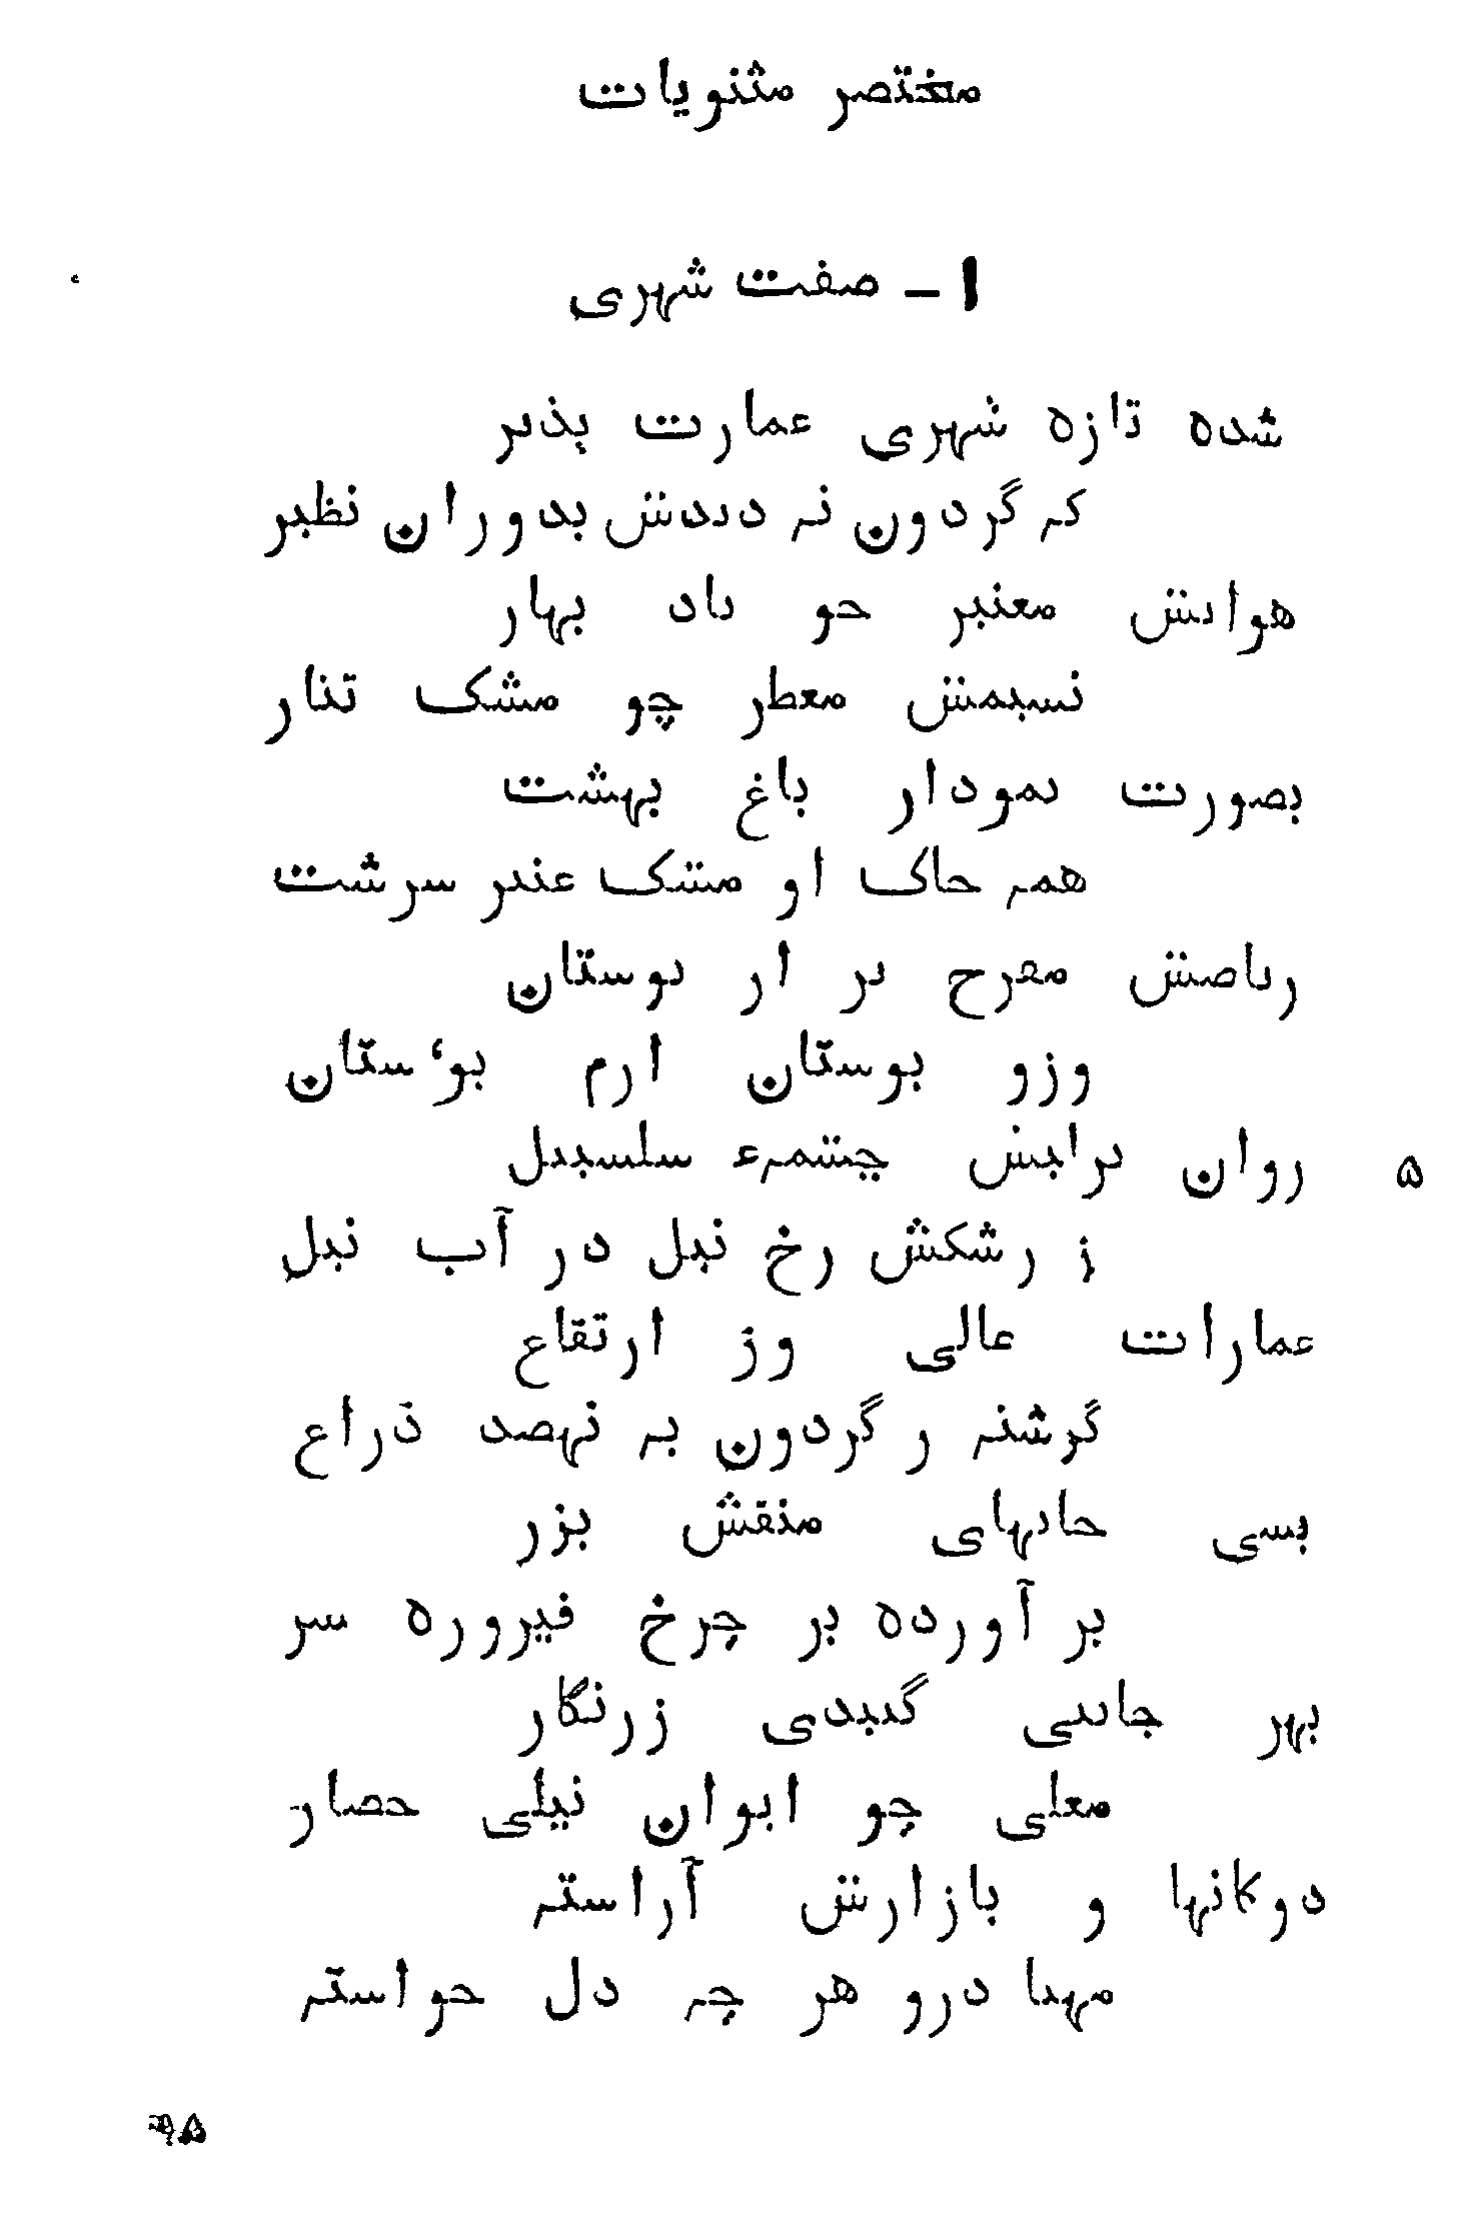 مختصر مثنویات
۱ - صفت شهری
شده تازه شهری عمارت پذیر
که گردون نه دیدش بدوران نظیر
هوایش معنبر چو باد بهار
نسیمش معطر چو مشک تتار
بصورت نمودار باغ بهشت
همه خاک او مشک عنبر سرشت
ریاضش مفرح تر از بوستان
وزو بوستان ارم بوٴستان
روان برابش چشمهء سلسبیل
ز رشکش رخ نیل در آب نیل
عمارات عالی وز ارتفاع
گزشته ز گردون به نهصد ذراع
بسی خانهای منقش بزر
بر آورده بر چرخ فیروزه سر
بهر جانبی گنبدی زرنگار
معلی چو ایوان نیلی حصار
دوکانها و بازارش آراسته
مهیا درو هر چه دل خواسته
۵